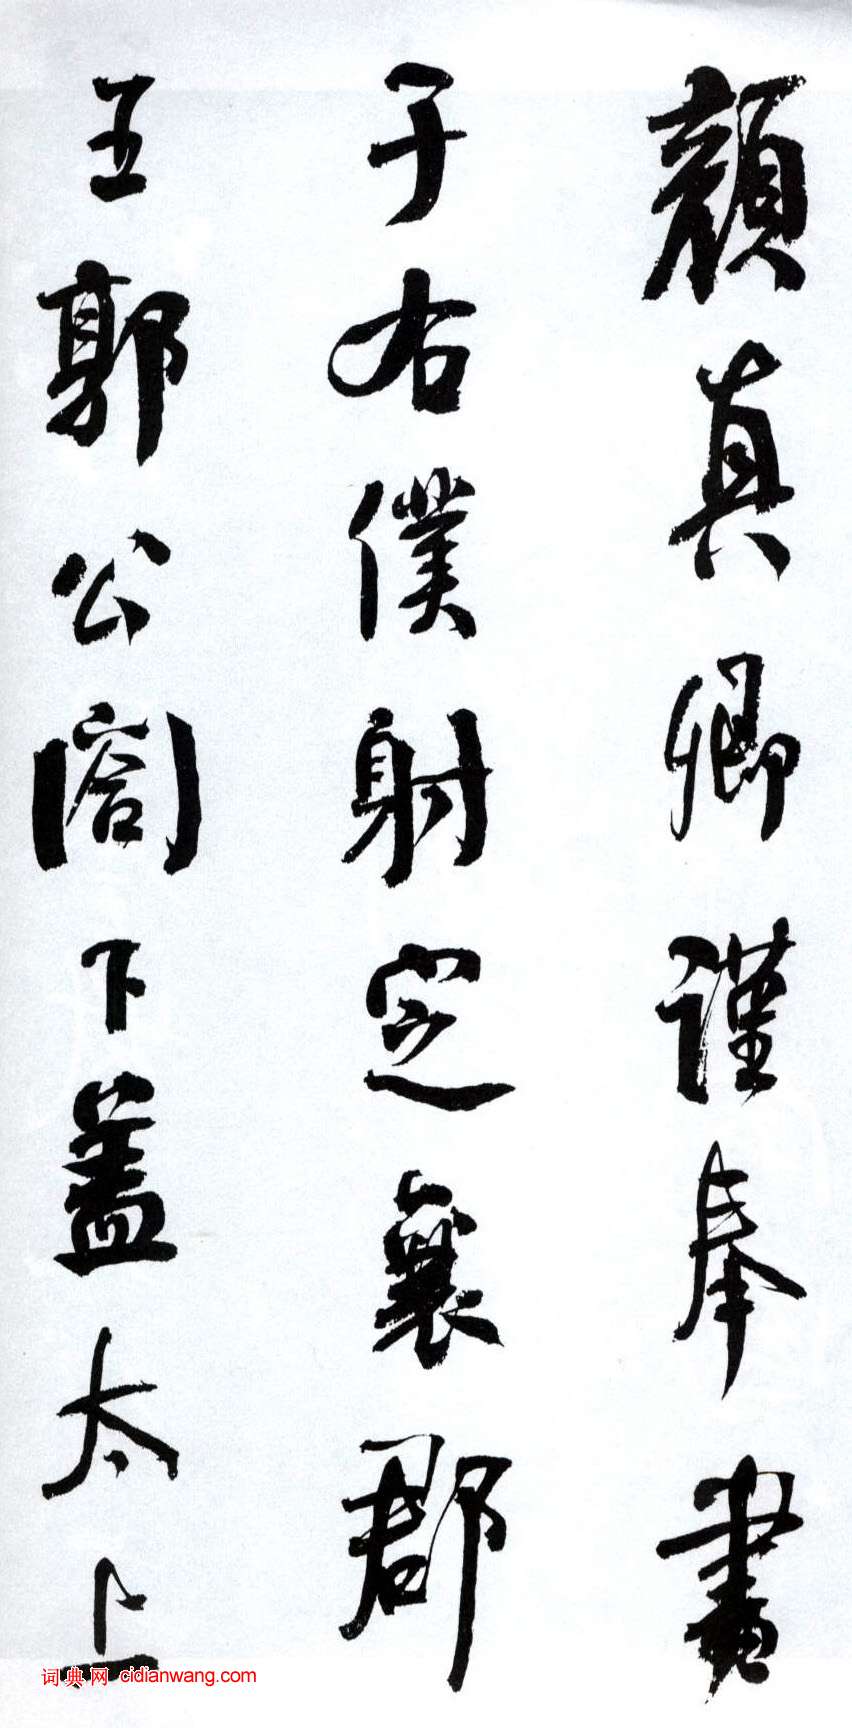 顏真卿謹奉書
于右僕射定襄郡
王郭公閤下蓋太上
词典网 cidianwang.com